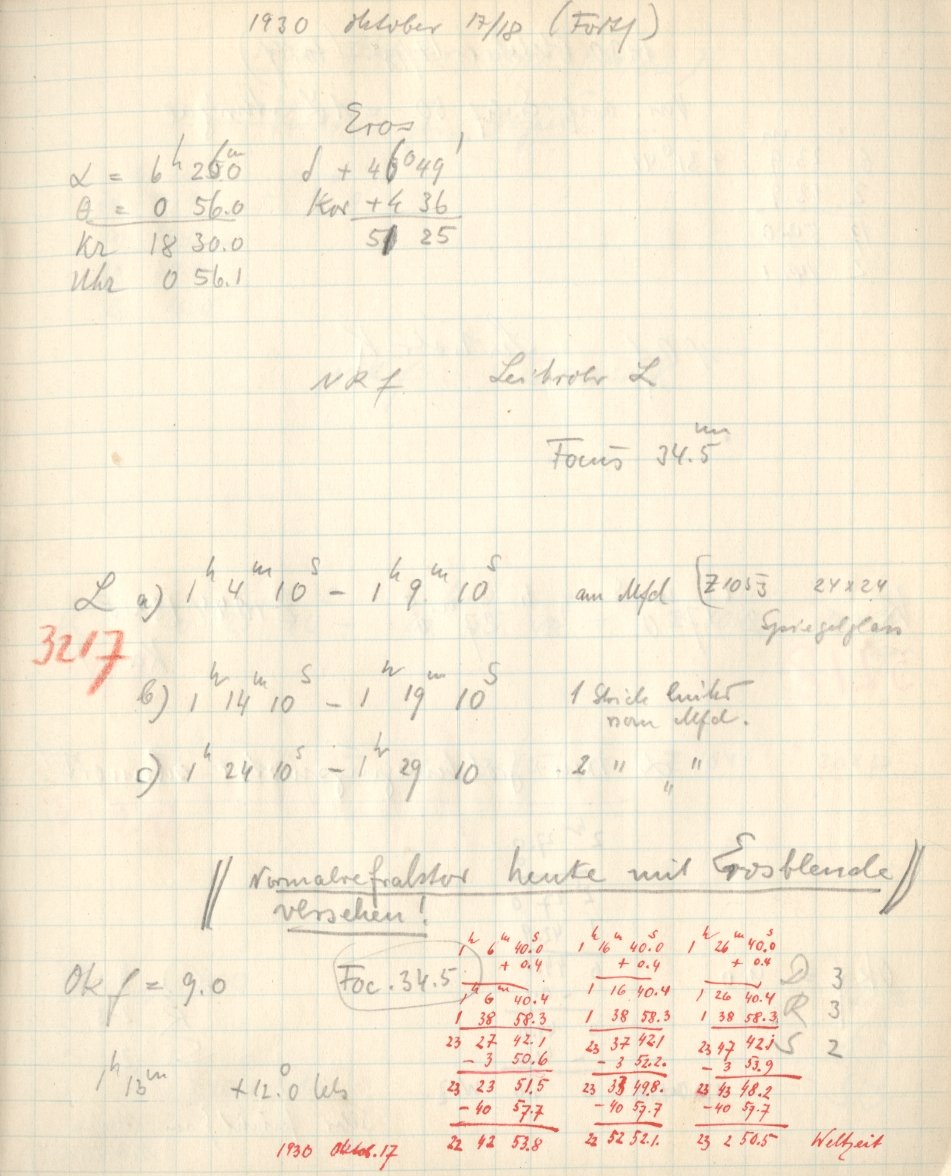 1930 Oktober 17/18 (Fortf)
Eros
α = 6h 26m.0 δ + 46° 49'
θ = 0 56.0 Kor +4 36
Kr 18 30.0 51 25
Uhr 0 56.1
NRf Leitrohr L
Focus 34.5 mm
L a) 1h 4m 10s - 1h 9m 10s am Mfd [Z1053 24x24
Spiegelglas
3217
b) 1h 14m 10s - 1h 19m 10s 1 Strich links
vom Mfd.
c) 1h 24 10s - 1h 29 10 2 " "
"
// Normalrefraktor heute mit Erosblende //
versehen!
1h 6m 40.0s 1h 16m 40.0s 1h 26m 40.0s
+ 0.4 + 0.4 + 0.4
Ok f = 9.0 Foc. 34.5 D 3
1h 6m 40.4 1 16 40.4 1 26 40.4
R 3
1 38 58.3 1 38 58.3 1 38 58.3
23 27 42.1 23 37 42.1 23 47 42.1
S 2
- 3 50.6 - 3 52.2 - 3 53.9
1h 13m +12.0°
23 23 51.5 23 33 49.8 23 43 48.2
- 40 57.7 - 40 57.7 - 40 57.7
1930 Oktob. 17 22 42 53.8 22 52 52.1 23 2 50.5 Weltzeit